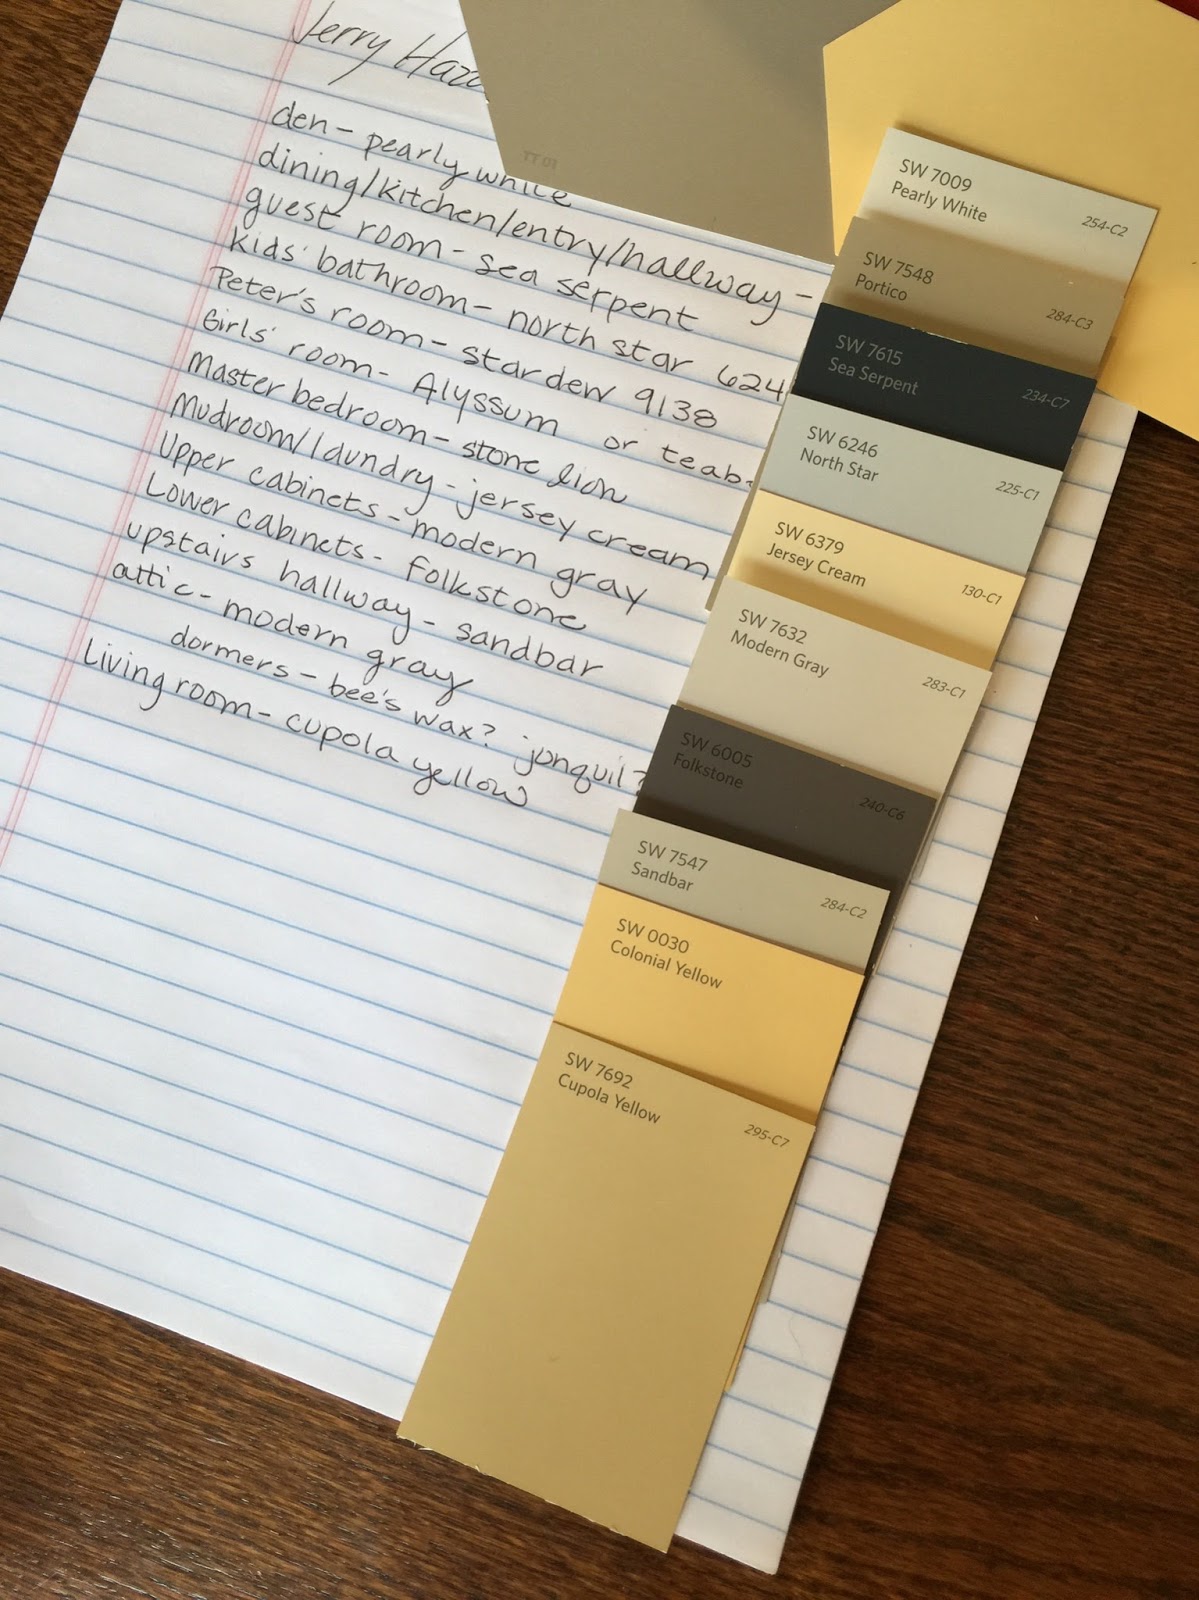 Jerry
den - pearly white
dining/kitchen/entry/hallway -
guest room - sea serpent
kids' bathroom - north star 624
Peter's room - stardew 9138
Girls' room - Alyssum or teab
Master bedroom - stone lion
Mudroom/laundry - jersey cream
Upper cabinets - modern gray
Lower cabinets - folkstone
upstairs hallway - sandbar
attic - modern gray
dormers - bee's wax? jonquil?
Living room - cupola yellow
SW 7009
Pearly White
254-C2
SW 7548
Portico
284-C3
SW 7615
Sea Serpent
234-C7
SW 6246
North Star
225-C1
SW 6379
Jersey Cream
130-C1
SW 7632
Modern Gray
283-C1
SW 6005
Folkstone
240-C6
SW 7547
Sandbar
284-C2
SW 0030
Colonial Yellow
SW 7692
Cupola Yellow
295-C7